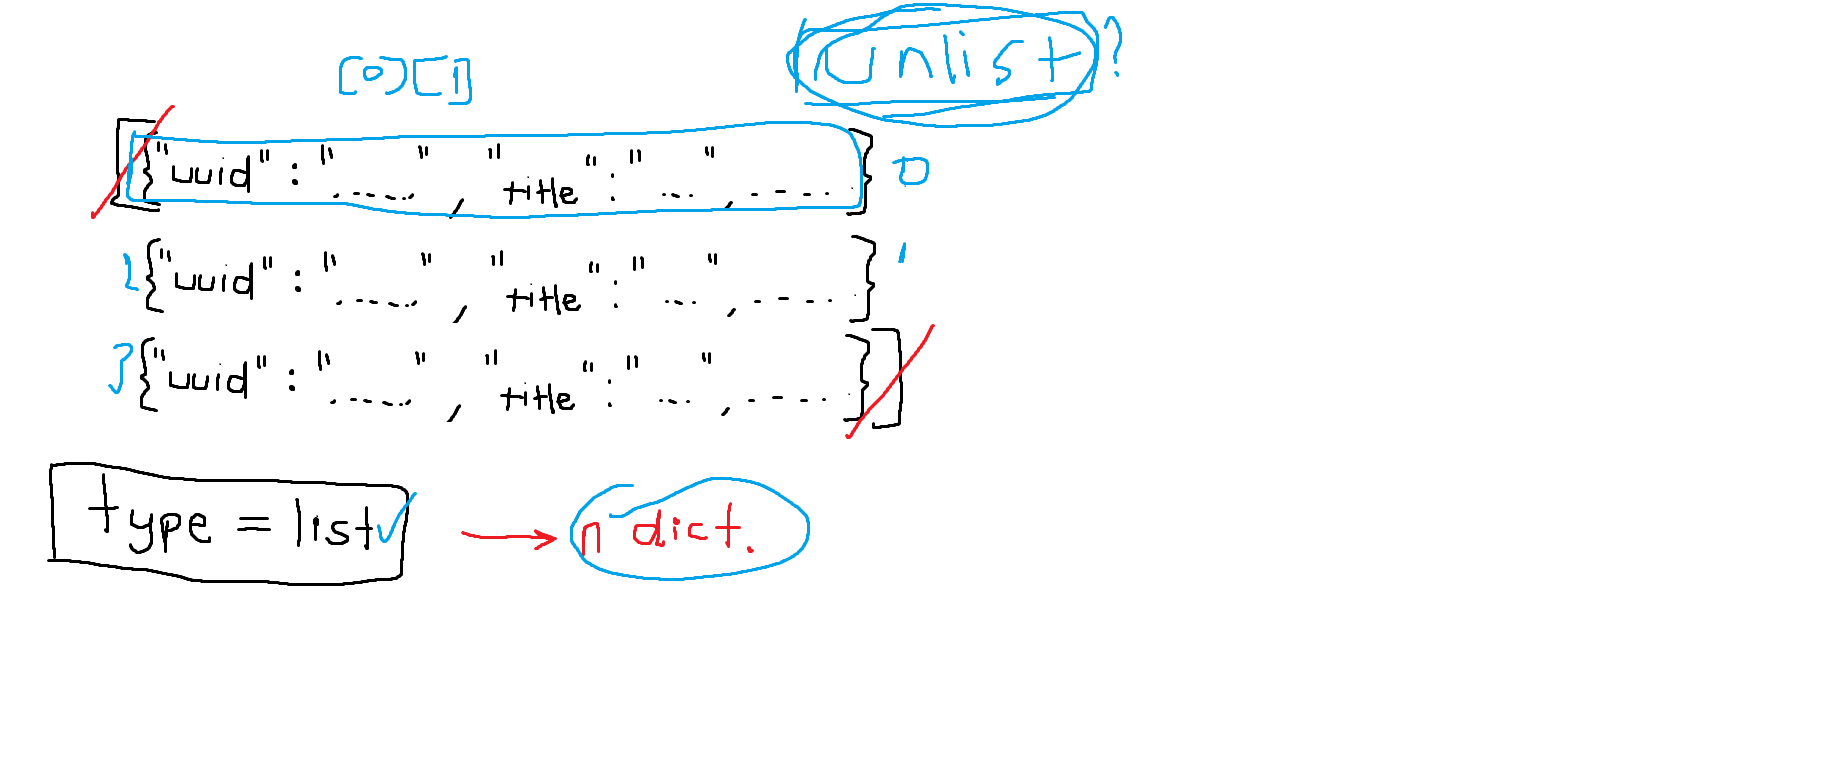 [0][1] unlist?
[{"uuid": ".....", "title": "...", .....} 0
2 {"uuid": ".....", "title": "...", .....} 1
3 {"uuid": ".....", "title": "...", .....}]
type = list✓ → n dict.